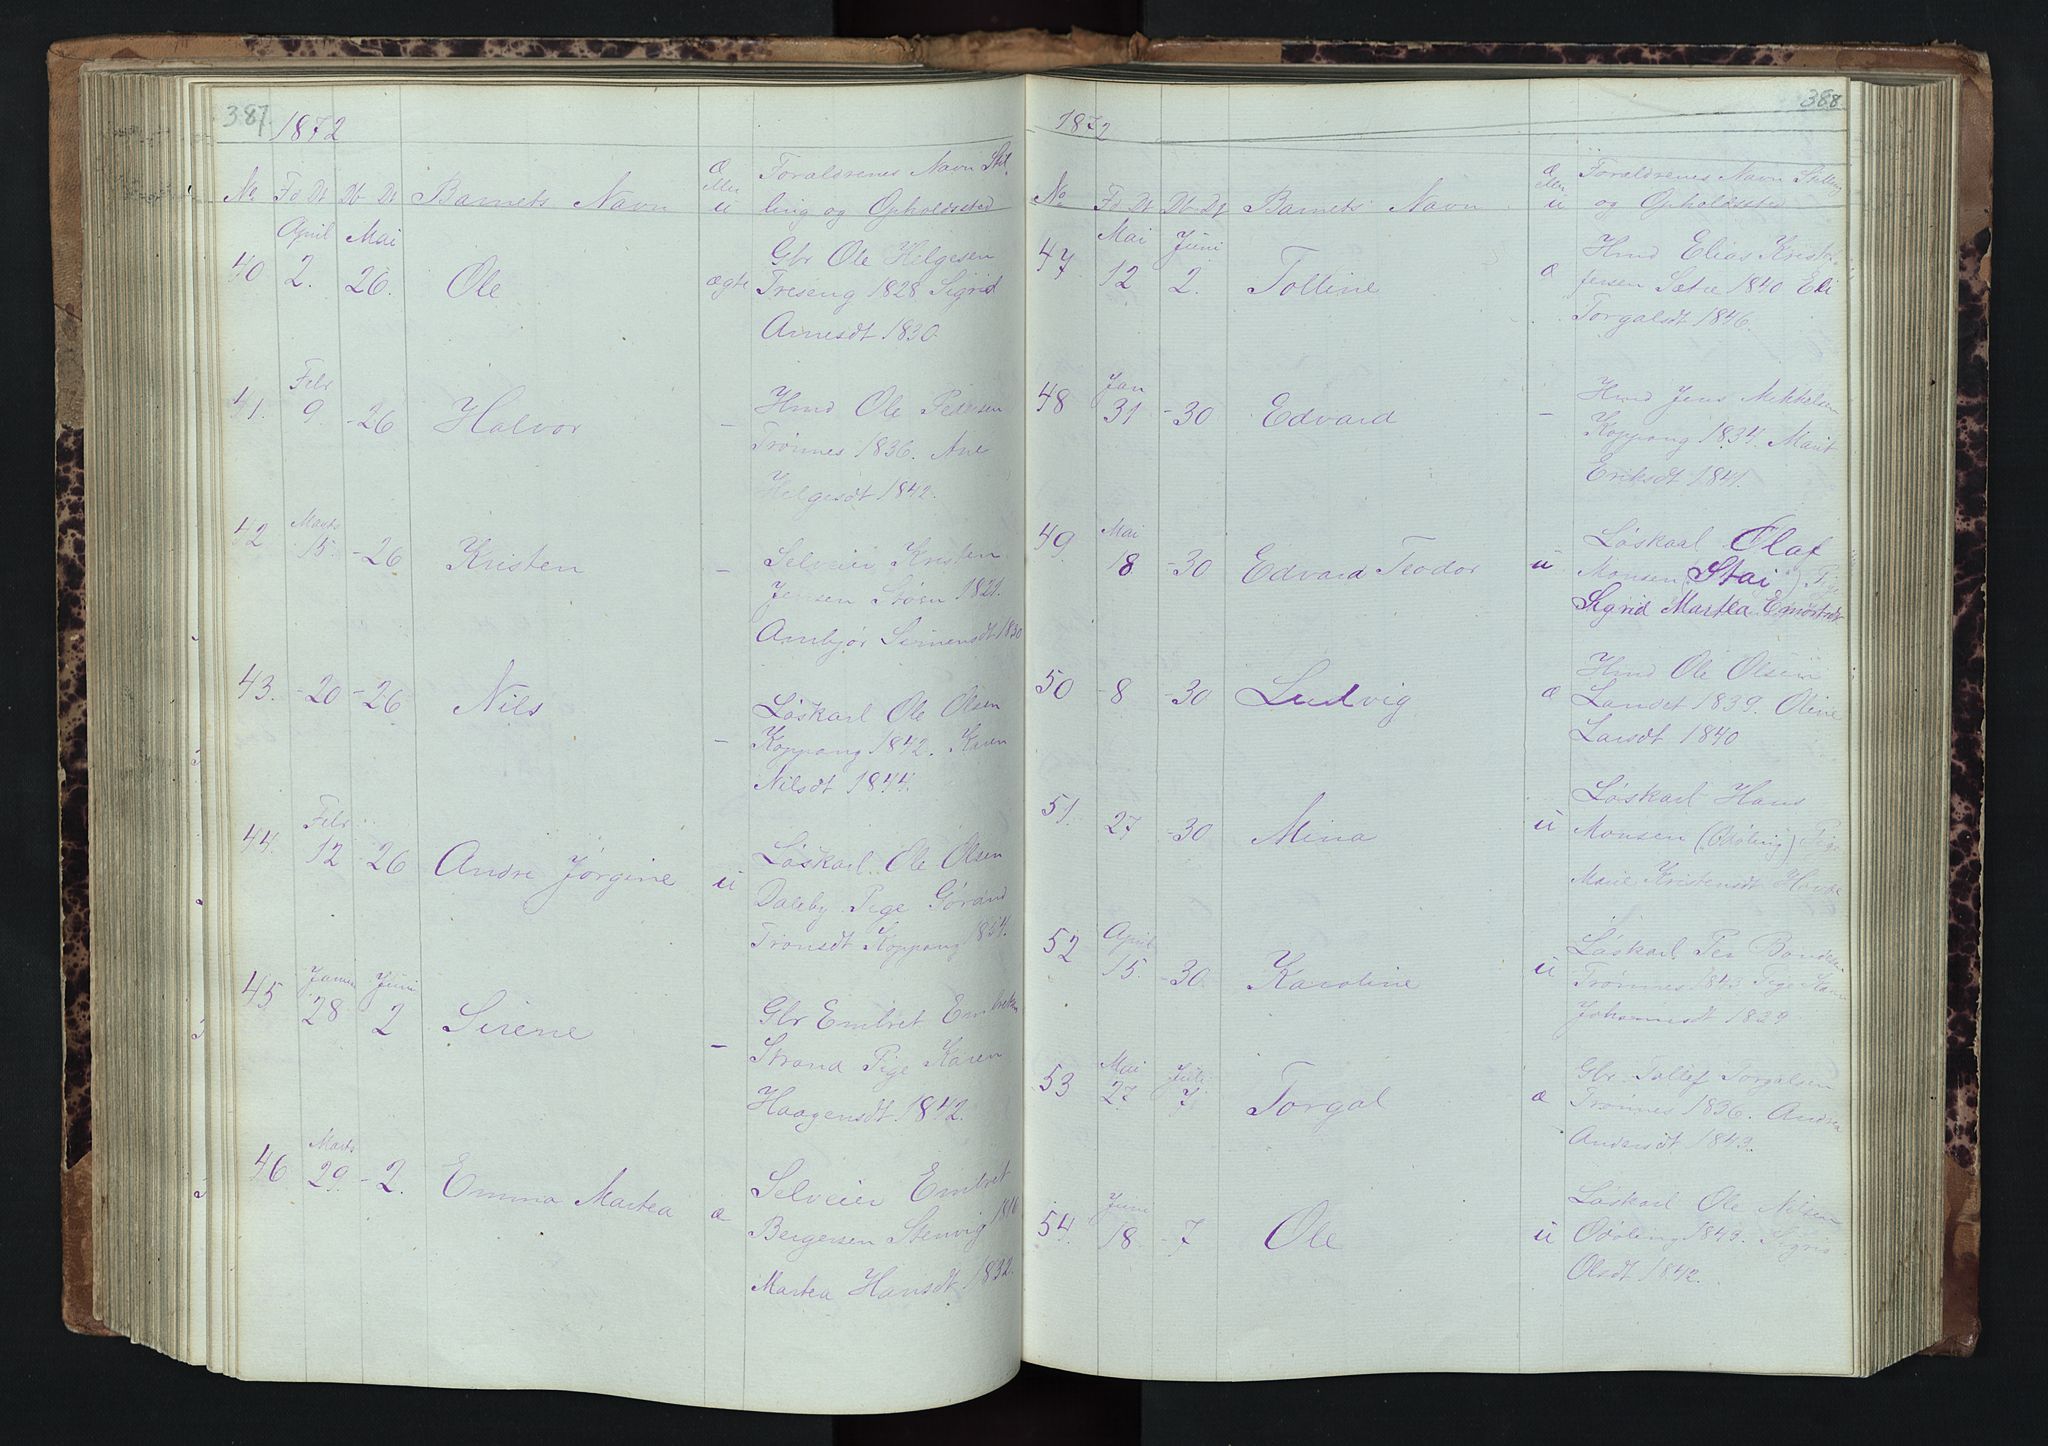 387.
1872
No Fd Dt Db Dt Barnets Navn æ eller u Forældrenes Navn Stil-
ling og Opholdssted
April Mai
40 2. 26. Ole ægte Gbr Ole Helgesen
Treseng 1828 Sigrid
Arnesdt 1830.
Febr
41. 9. -26 Halvor - Hmd Ole Pedersen
Trønnes 1836. Ane
Helgesdt 1842.
Marts
42 15. -26 Kristen - Selveier Kristen
Jensen Støen 1821.
Ambjør Simensdt 1830
43. -20 -26 Nils - Løskarl Ole Olsen
Koppang 1842. Karen
Nilsdt 1844.
Febr
44. 12 -26 Andre Jørgine u Løskarl Ole Olsen
Daleby Pige Gørand
Tronsdt Koppang 1854.
Januar Juni
45 28 2 Sirene - Gbr Embret Embretsen
Strand Pige Karen
Haagensdt 1842.
Marts
46 29. -2. Emma Martea æ Selveier Embret
Bergersen Stenvig 1816
Martea Hansdt 1832.
388
1872
No Fd Dt Db Dt Barnets Navn æ eller u Forældrenes Navn Stilling
og Opholdssted
Mai Juni
47 12 2. Tolline æ Hmd Elias Kristo-
fersen Sætre 1840 Eli
Torgalsdt 1846.
Jan
48 31 -30 Edvard - Hmd Jens Mikkelsen
Koppang 1834. Marit
Eriksdt 1841.
Mai
49 18 -30 Edvard Teodor u Løskarl Olaf
Monsen (Stai) Pige
Sigrid Martea
50 -8 -30 Ludvig æ Hmd Ole Olsen
Landet 1839. Oline
Larsdt 1840
51. 27 -30 Mina u Løskarl Hans
Monsen (Odøling) Pige
Marie Kristensdt
April
52 15. -30 Karoline u Løskarl Per
Trønnes 1843 Pige Karen
Johannesdt 1829
Mai Juli
53 27 7 Torgal æ Gbr Tollef Torgalsen
Trønnes 1836. Andrea
Andersdt 1843.
Juni
54. 18. -7 Ole u Løskarl Ole Nilsen
Odøling 1849. Sigri
Olsdt 1842.